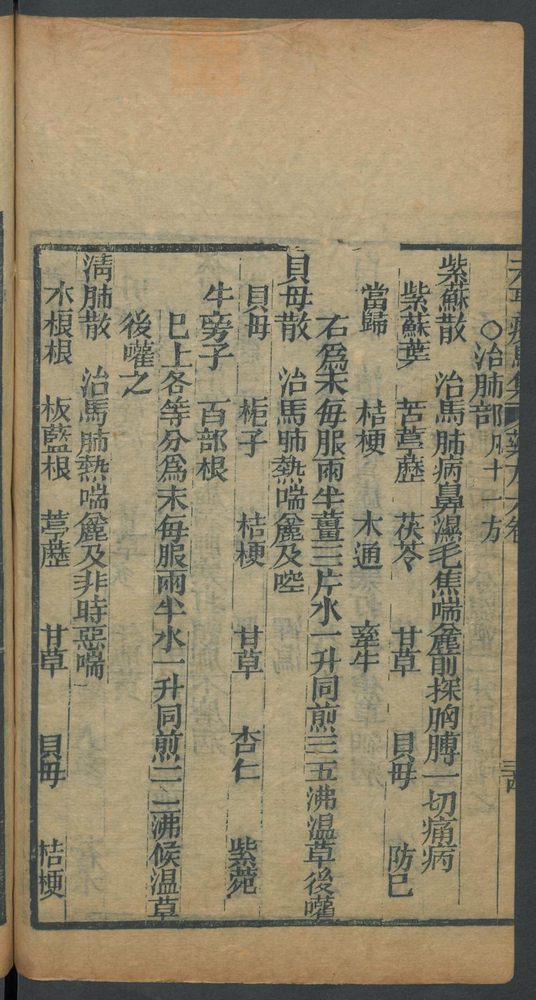 元亨療馬集
○治肺部凡十一方
紫蘇散 治馬肺病鼻濕毛焦喘麄前探胸膊一切痛病
紫蘇葉 苦葶藶 茯苓 甘草 貝母 防已
當歸 桔梗 木通 牽牛
右爲末每服兩半薑三片水一升同煎三五沸溫草後嚾
貝母散 治馬肺熱喘麄及啌
貝母 梔子 桔梗 甘草 杏仁 紫菀
牛旁子 百部根
已上各等分爲末每服兩半水一升同煎二三沸候溫草
後嚾之
淸肺散 治馬肺熱喘麄及非時惡喘
木根根 板藍根 葶藶 甘草 貝母 桔梗